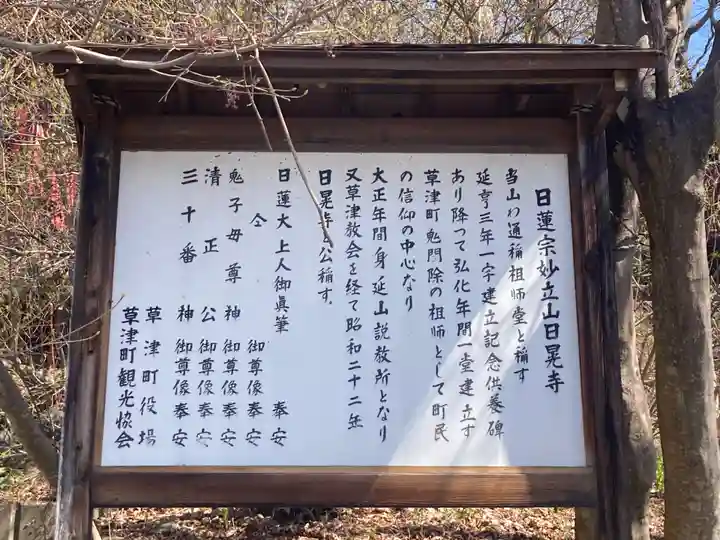 日蓮宗妙立山日晃寺
当山わ通稱祖師堂と稱す
延亨三年一宇建立記念供養碑
あり降つて弘化年間一堂建立す
草津町鬼門除の祖師として町民
の信仰の中心なり
大正年間身延山説教所となり
又草津教会を経て昭和二十二年
日晃寺と公稱す
日蓮大上人御眞筆 奉安
仝 御尊像奉安
鬼子母尊神 御尊像奉安
清正公 御尊像奉安
三十番神 御尊像奉安
草津町役場
草津町観光協会